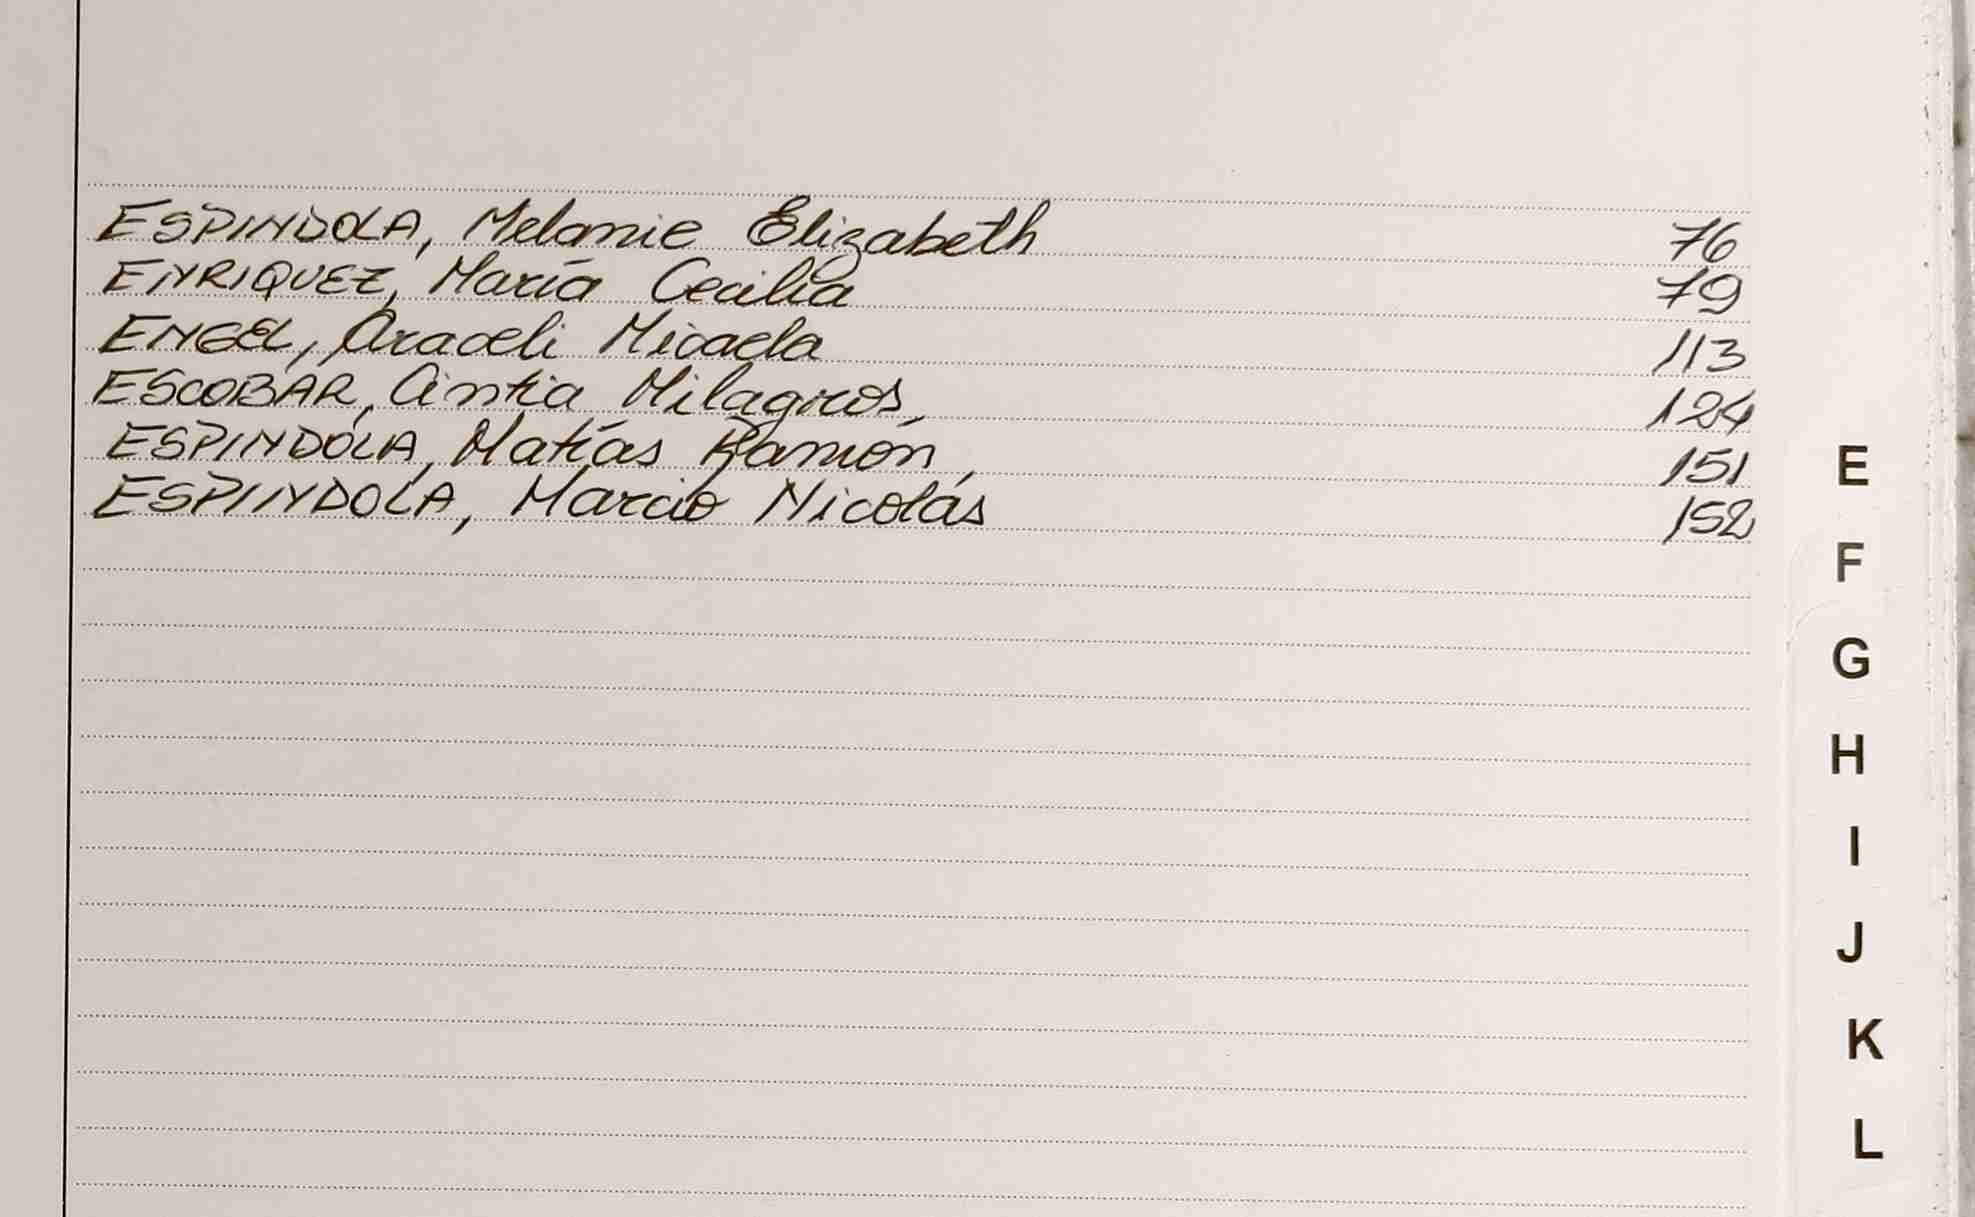 ESPINDOLA, Melanie Elizabeth 76
ENRIQUEZ, María Cecilia 79
ENGEL, Araceli Micaela 113
ESCOBAR, Cintia Milagros, 124
ESPINDOLA, Matías Ramón, 151
ESPINDOLA, Marcio Nicolás 152
E
F
G
H
I
J
K
L